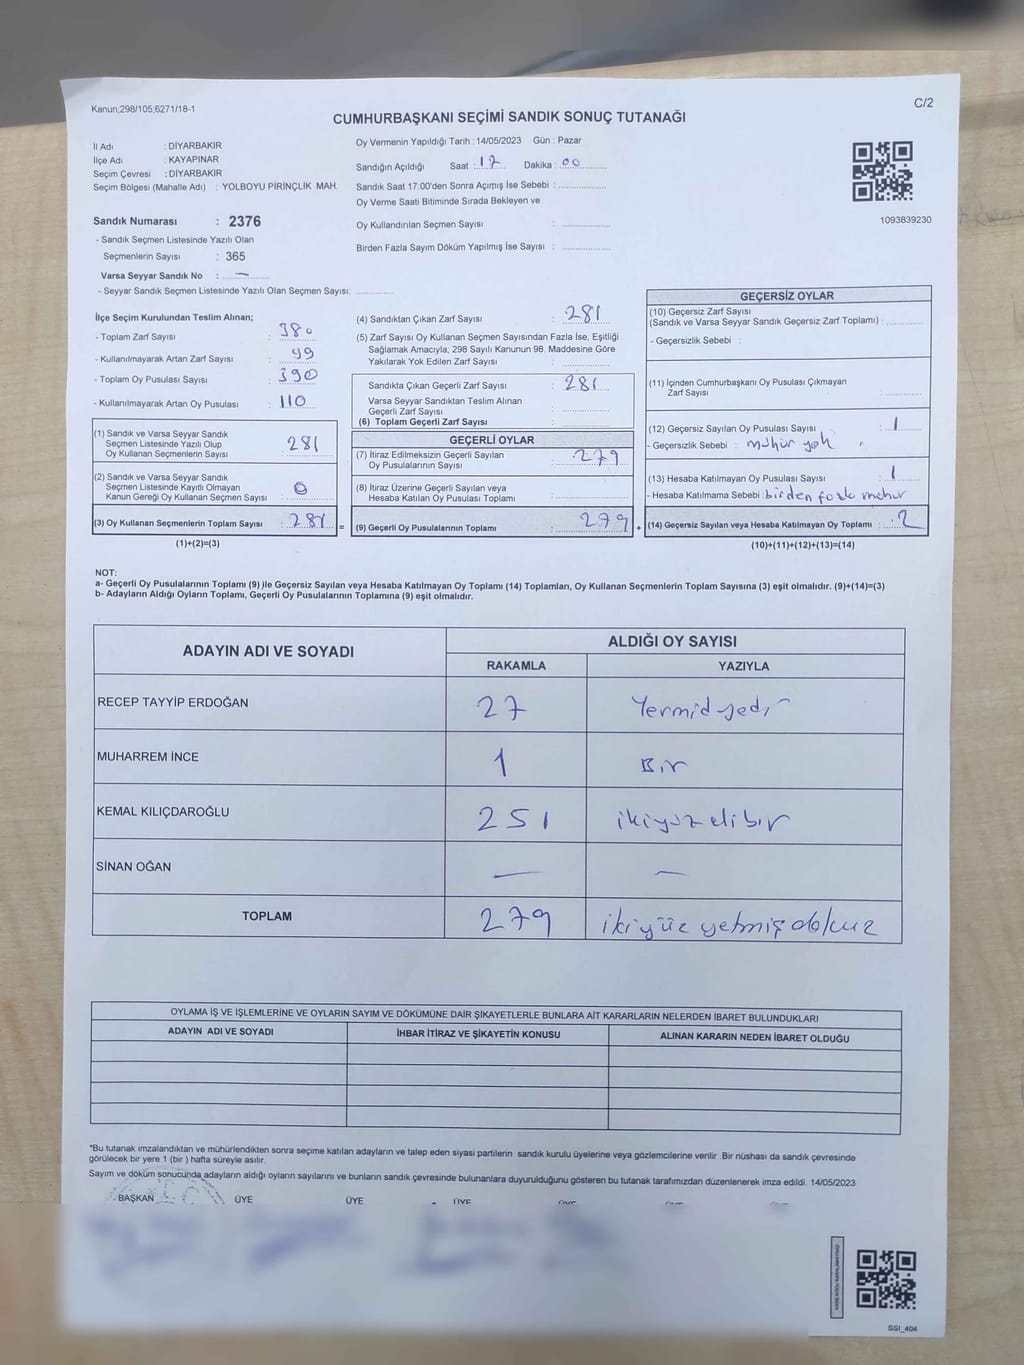 Kanun;298/105;6271/18-1
C/2
CUMHURBAŞKANI SEÇİMİ SANDIK SONUÇ TUTANAĞI
İl Adı : DİYARBAKIR
İlçe Adı : KAYAPINAR
Seçim Çevresi : DİYARBAKIR
Seçim Bölgesi (Mahalle Adı) : YOLBOYU PİRİNÇLİK MAH.
Sandık Numarası : 2376
- Sandık Seçmen Listesinde Yazılı Olan
Seçmenlerin Sayısı : 365
Varsa Seyyar Sandık No : —
- Seyyar Sandık Seçmen Listesinde Yazılı Olan Seçmen Sayısı:
Oy Vermenin Yapıldığı Tarih : 14/05/2023 Gün : Pazar
Sandığın Açıldığı Saat : 17 Dakika : 00
Sandık Saat 17:00'den Sonra Açımış İse Sebebi :
Oy Verme Saati Bitiminde Sırada Bekleyen ve
Oy Kullandırılan Seçmen Sayısı :
Birden Fazla Sayım Döküm Yapılmış İse Sayısı :
1093839230
İlçe Seçim Kurulundan Teslim Alınan;
- Toplam Zarf Sayısı : 380
- Kullanılmayarak Artan Zarf Sayısı : 99
- Toplam Oy Pusulası Sayısı : 390
- Kullanılmayarak Artan Oy Pusulası : 110
(1) Sandık ve Varsa Seyyar Sandık
Seçmen Listesinde Yazılı Olup
Oy Kullanan Seçmenlerin Sayısı : 281
(2) Sandık ve Varsa Seyyar Sandık
Seçmen Listesinde Kayıtlı Olmayan
Kanun Gereği Oy Kullanan Seçmen Sayısı : 0
(3) Oy Kullanan Seçmenlerin Toplam Sayısı : 281
(1)+(2)=(3)
=
(4) Sandıktan Çıkan Zarf Sayısı : 281
(5) Zarf Sayısı Oy Kullanan Seçmen Sayısından Fazla İse, Eşitliği
Sağlamak Amacıyla; 298 Sayılı Kanunun 98. Maddesine Göre
Yakılarak Yok Edilen Zarf Sayısı :
Sandıkta Çıkan Geçerli Zarf Sayısı : 281
Varsa Seyyar Sandıktan Teslim Alınan
Geçerli Zarf Sayısı :
(6) Toplam Geçerli Zarf Sayısı :
GEÇERLİ OYLAR
(7) İtiraz Edilmeksizin Geçerli Sayılan
Oy Pusulalarının Sayısı : 279
(8) İtiraz Üzerine Geçerli Sayılan veya
Hesaba Katılan Oy Pusulası Toplamı :
(9) Geçerli Oy Pusulalarının Toplamı : 279
+
GEÇERSİZ OYLAR
(10) Geçersiz Zarf Sayısı
(Sandık ve Varsa Seyyar Sandık Geçersiz Zarf Toplamı) :
- Geçersizlik Sebebi :
(11) İçinden Cumhurbaşkanı Oy Pusulası Çıkmayan
Zarf Sayısı :
(12) Geçersiz Sayılan Oy Pusulası Sayısı : 1
- Geçersizlik Sebebi : mühür yok
(13) Hesaba Katılmayan Oy Pusulası Sayısı : 1
- Hesaba Katılmama Sebebi : birden fazla mühür
(14) Geçersiz Sayılan veya Hesaba Katılmayan Oy Toplamı : 2
(10)+(11)+(12)+(13)=(14)
NOT:
a- Geçerli Oy Pusulalarının Toplamı (9) ile Geçersiz Sayılan veya Hesaba Katılmayan Oy Toplamı (14) Toplamları, Oy Kullanan Seçmenlerin Toplam Sayısına (3) eşit olmalıdır. (9)+(14)=(3)
b- Adayların Aldığı Oyların Toplamı, Geçerli Oy Pusulalarının Toplamına (9) eşit olmalıdır.
ADAYIN ADI VE SOYADI
ALDIĞI OY SAYISI
RAKAMLA YAZIYLA
RECEP TAYYİP ERDOĞAN 27 Yermid yedi
MUHARREM İNCE 1 Bir
KEMAL KILIÇDAROĞLU 251 ikiyüz elibir
SİNAN OĞAN — —
TOPLAM 279 ikiyüz yetmiş dokuz
OYLAMA İŞ VE İŞLEMLERİNE VE OYLARIN SAYIM VE DÖKÜMÜNE DAİR ŞİKAYETLERLE BUNLARA AİT KARARLARIN NELERDEN İBARET BULUNDUKLARI
ADAYIN ADI VE SOYADI İHBAR İTİRAZ VE ŞİKAYETİN KONUSU ALINAN KARARIN NEDEN İBARET OLDUĞU
*Bu tutanak imzalandıktan ve mühürlendikten sonra seçime katılan adayların ve talep eden siyasi partilerin sandık kurulu üyelerine veya gözlemcilerine verilir .Bir nüshası da sandık çevresinde
görülecek bir yere 1 (bir ) hafta süreyle asılır.
Sayım ve döküm sonucunda adayların aldığı oyların sayılarını ve bunların sandık çevresinde bulunanlara duyurulduğunu gösteren bu tutanak tarafımızdan düzenlenerek imza edildi. 14/05/2023
BAŞKAN ÜYE ÜYE ÜYE
SSI_404